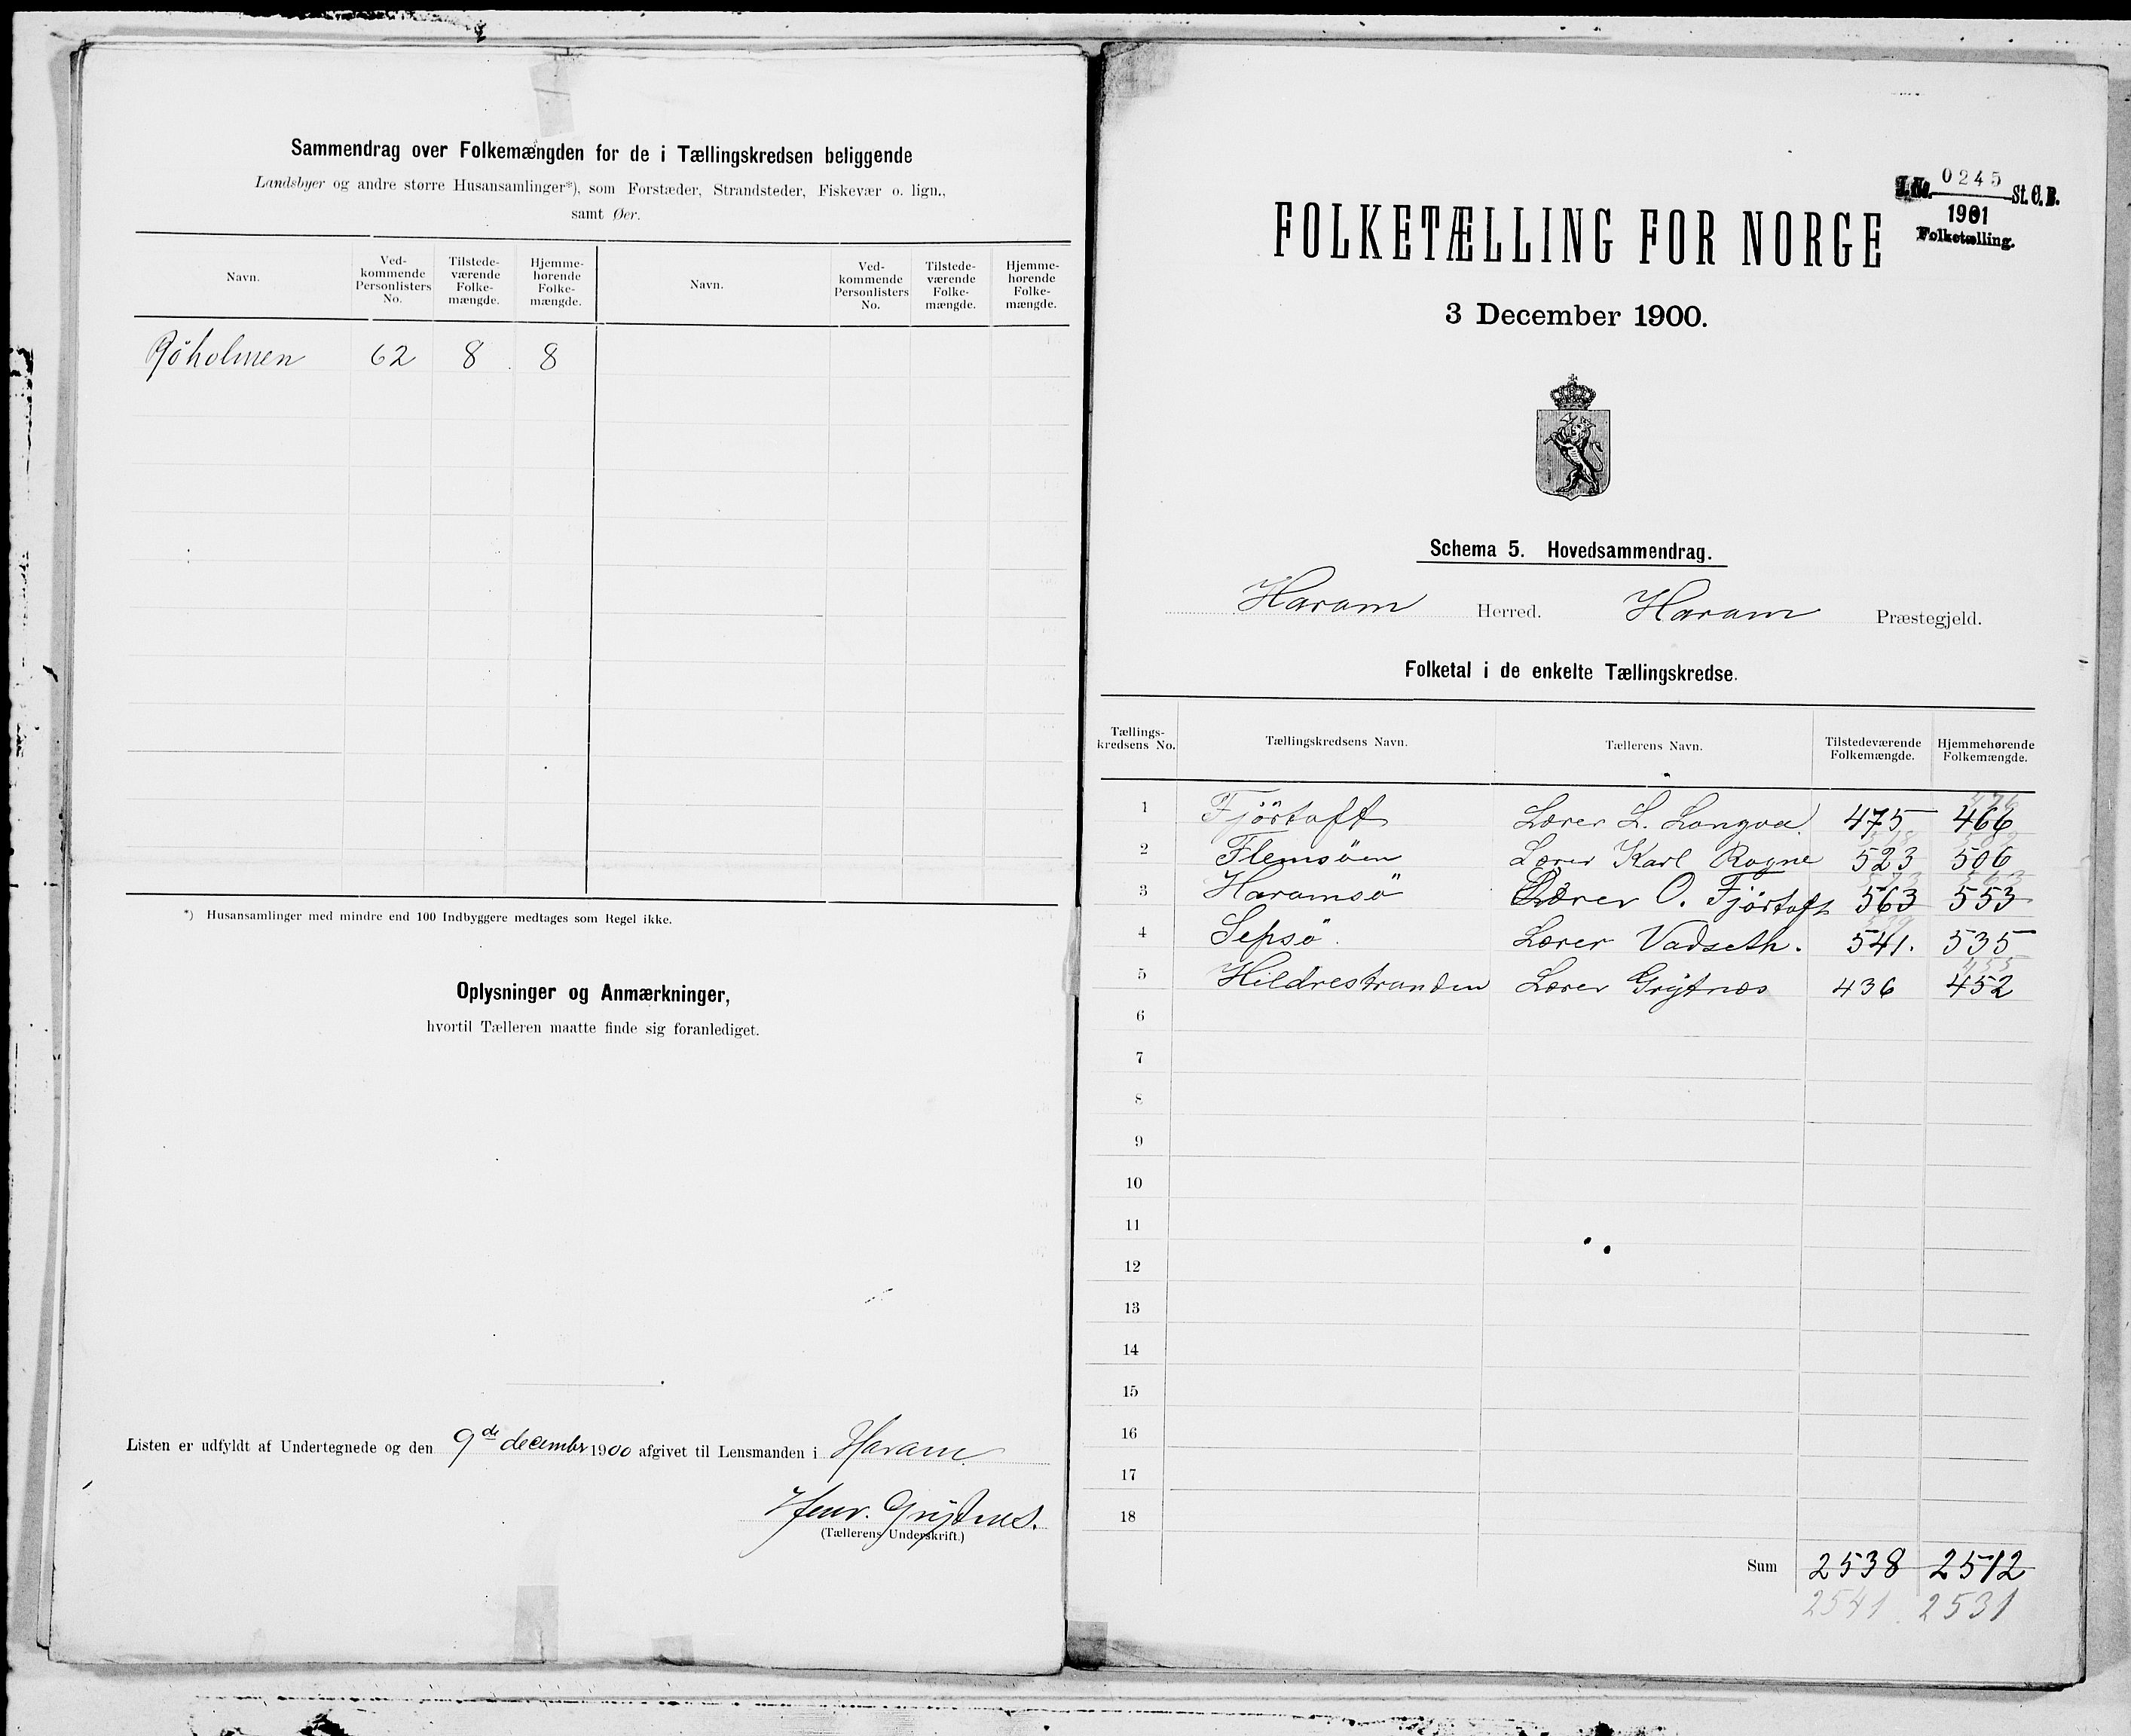 Sammendrag over Folkemængden for de i Tællingskredsen beliggende
Landsbyer og andre større Husansamlinger*), som Forstæder, Strandsteder, Fiskevær o. lign.,
samt Øer.
Navn. Ved-kommende Personlisters No. Tilstede-værende Folke-mængde. Hjemme-hørende Folke-mængde. Navn. Ved-kommende Personlisters No. Tilstede-værende Folke-mængde. Hjemme-hørende Folke-mængde.
Röholmen 62 8 8
*) Husansamlinger med mindre end 100 Indbyggere medtages som Regel ikke.
Oplysninger og Anmærkninger,
hvortil Tælleren maatte finde sig foranlediget.
Listen er udfyldt af Undertegnede og den 9de decembr 1900 afgivet til Lensmanden i Haram
Henr. Grijtnes.
(Tællerens Underskrift.)
J. No. 0245 St. C. B.
1901
Folketælling.
FOLKETÆLLING FOR NORGE
3 December 1900.
Schema 5. Hovedsammendrag.
Haram Herred. Haram Præstegjeld.
Folketal i de enkelte Tællingskredse.
Tællings-kredsens No. Tællingskredsens Navn. Tællerens Navn. Tilstedeværende Folkemængde. Hjemmehørende Folkemængde.
1 Fjörtoft Lærer L. Longva 475 466
2 Flemsöen Lærer Karl Rogne 523 506
3 Haramsö Lærer O. Fjörtoft 563 553
4 Sepsö. Lærer Vadseth. 541. 535
5 Hildrestranden Lærer Grijtnæs 436 452
6
7
8
9
10
11
12
13
14
15
16
17
18
Sum 2538 2512
2541 2531